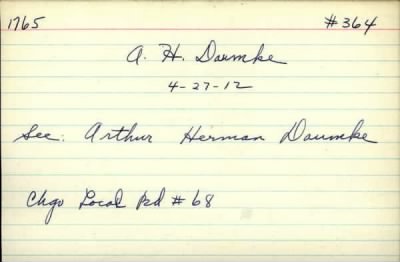 1765 #364
A. H. Daumke
4-27-12
See: Arthur Herman Daumke
Chgo Local Bd #68